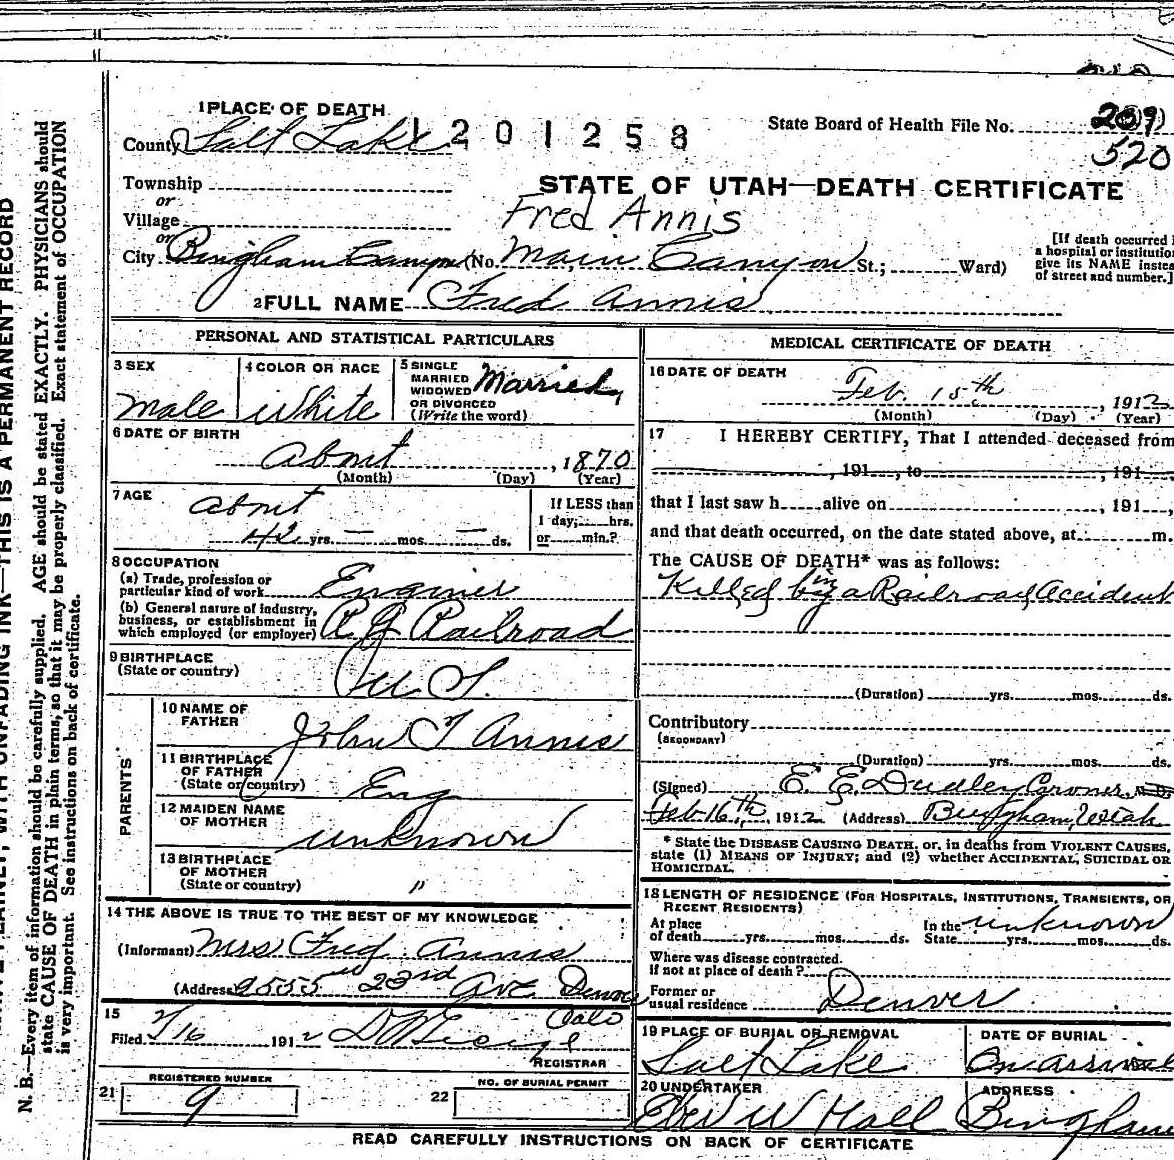 1 PLACE OF DEATH
County Salt Lake 1201258
State Board of Health File No. 209
520
Township
or
Village
or
STATE OF UTAH—DEATH CERTIFICATE
Fred Annis
City Bingham Canyon (No. Main Canyon St.; Ward)
[If death occurred i
a hospital or institution
give its NAME instea
of street and number.]
2 FULL NAME Fred Annis
PERSONAL AND STATISTICAL PARTICULARS
3 SEX
Male
4 COLOR OR RACE
White
5 SINGLE
MARRIED
WIDOWED
OR DIVORCED
(Write the word)
Married
6 DATE OF BIRTH
About , 1870
(Month) (Day) (Year)
7 AGE
About
42 yrs. — mos. — ds.
If LESS than
1 day; hrs.
or min.?
8 OCCUPATION
(a) Trade, profession or
particular kind of work Enginer
(b) General nature of industry,
business, or establishment in
which employed (or employer) R.G. Railroad
9 BIRTHPLACE
(State or country) U S.
PARENTS
10 NAME OF
FATHER John T Annis
11 BIRTHPLACE
OF FATHER
(State or country) Eng
12 MAIDEN NAME
OF MOTHER unknown
13 BIRTHPLACE
OF MOTHER
(State or country) "
14 THE ABOVE IS TRUE TO THE BEST OF MY KNOWLEDGE
(Informant) Mrs Fred Annis
(Address) 2555 23rd Ave Denver
Colo
15
Filed 2/16 1912
REGISTRAR
REGISTERED NUMBER
21 9
NO. OF BURIAL PERMIT
22
MEDICAL CERTIFICATE OF DEATH
16 DATE OF DEATH
Feb. 15th , 1912
(Month) (Day) (Year)
17 I HEREBY CERTIFY, That I attended deceased from
, 191 , to , 191
that I last saw h alive on , 191 ,
and that death occurred, on the date stated above, at m.
The CAUSE OF DEATH* was as follows:
Killed by in a Railroad Accident
(Duration) yrs. mos. ds.
Contributory
(SECONDARY)
(Duration) yrs. mos. ds.
(Signed) E. E. Dudley Coroner, M.D.
Feb. 16th, 1912 (Address) Bingham, Utah
* State the DISEASE CAUSING DEATH, or, in deaths from VIOLENT CAUSES,
state (1) MEANS OF INJURY; and (2) whether ACCIDENTAL, SUICIDAL OR
HOMICIDAL.
18 LENGTH OF RESIDENCE (FOR HOSPITALS, INSTITUTIONS, TRANSIENTS, OR
RECENT RESIDENTS)
At place
of death yrs. mos. ds.
In the
State yrs. mos. ds. unknown
Where was disease contracted.
if not at place of death?
Former or
usual residence Denver
19 PLACE OF BURIAL OR REMOVAL
Salt Lake
DATE OF BURIAL
On arrival
20 UNDERTAKER
Eber W Hall
ADDRESS
Bingham
READ CAREFULLY INSTRUCTIONS ON BACK OF CERTIFICATE
THIS IS A PERMANENT RECORD
N. B.—Every item of information should be carefully supplied. AGE should be stated EXACTLY. PHYSICIANS should
state CAUSE OF DEATH in plain terms, so that it may be properly classified. Exact statement of OCCUPATION
is very important. See instructions on back of certificate.